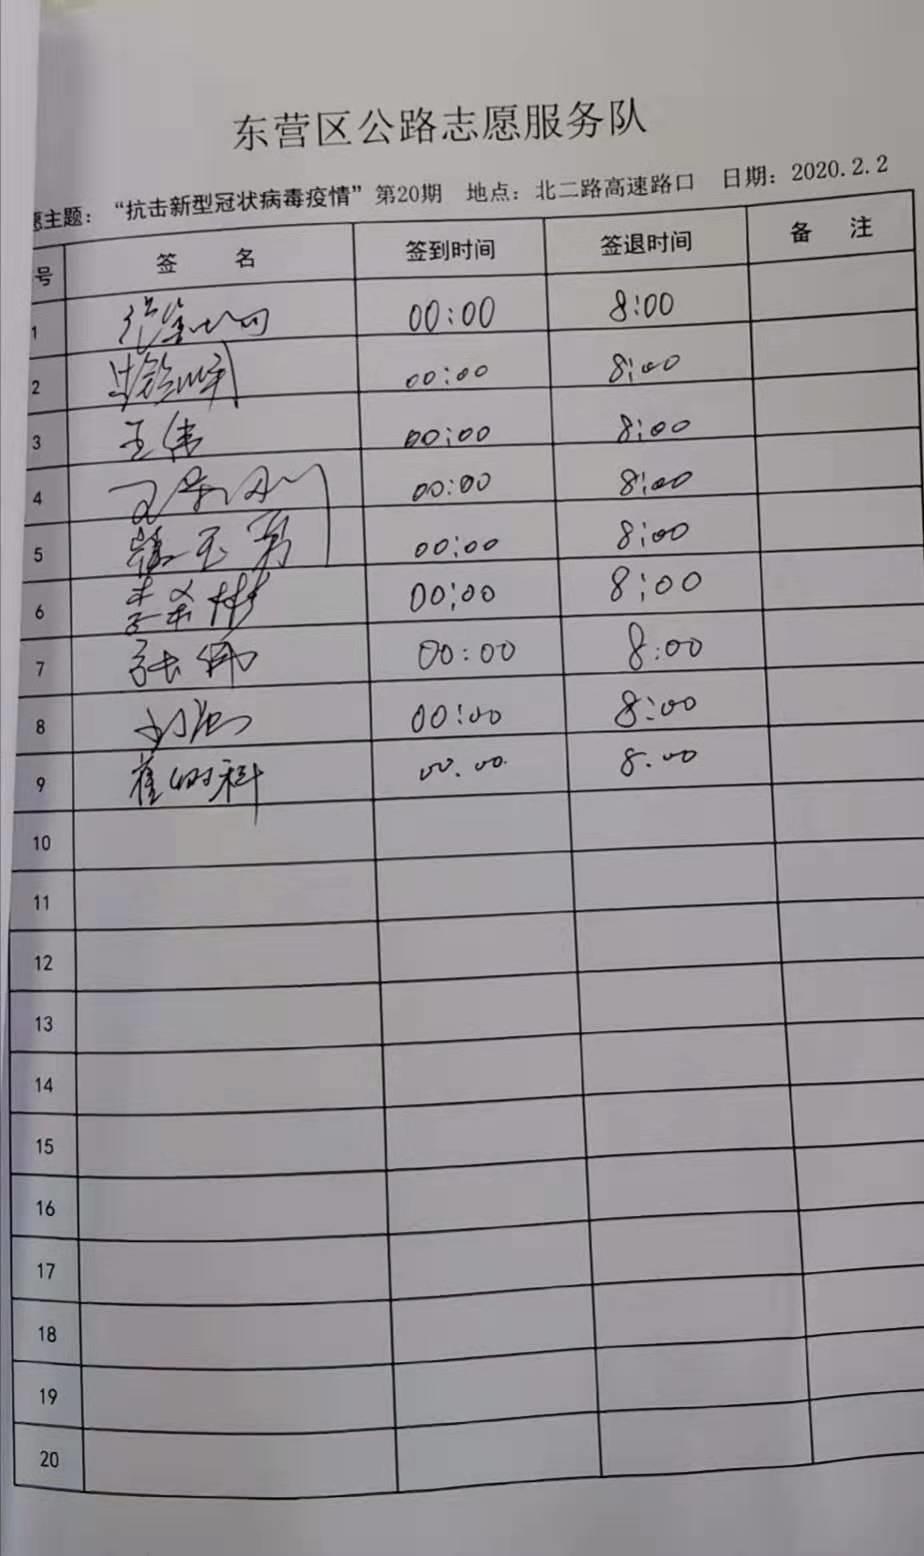 东营区公路志愿服务队
愿主题：“抗击新型冠状病毒疫情”第20期 地点：北二路高速路口 日期：2020.2.2
号 签 名 签到时间 签退时间 备 注
1 00:00 8:00
2 00:00 8:00
3 王伟 00:00 8:00
4 00:00 8:00
5 00:00 8:00
6 00:00 8:00
7 00:00 8:00
8 00:00 8:00
9 崔树科 00.00 8.00
10
11
12
13
14
15
16
17
18
19
20